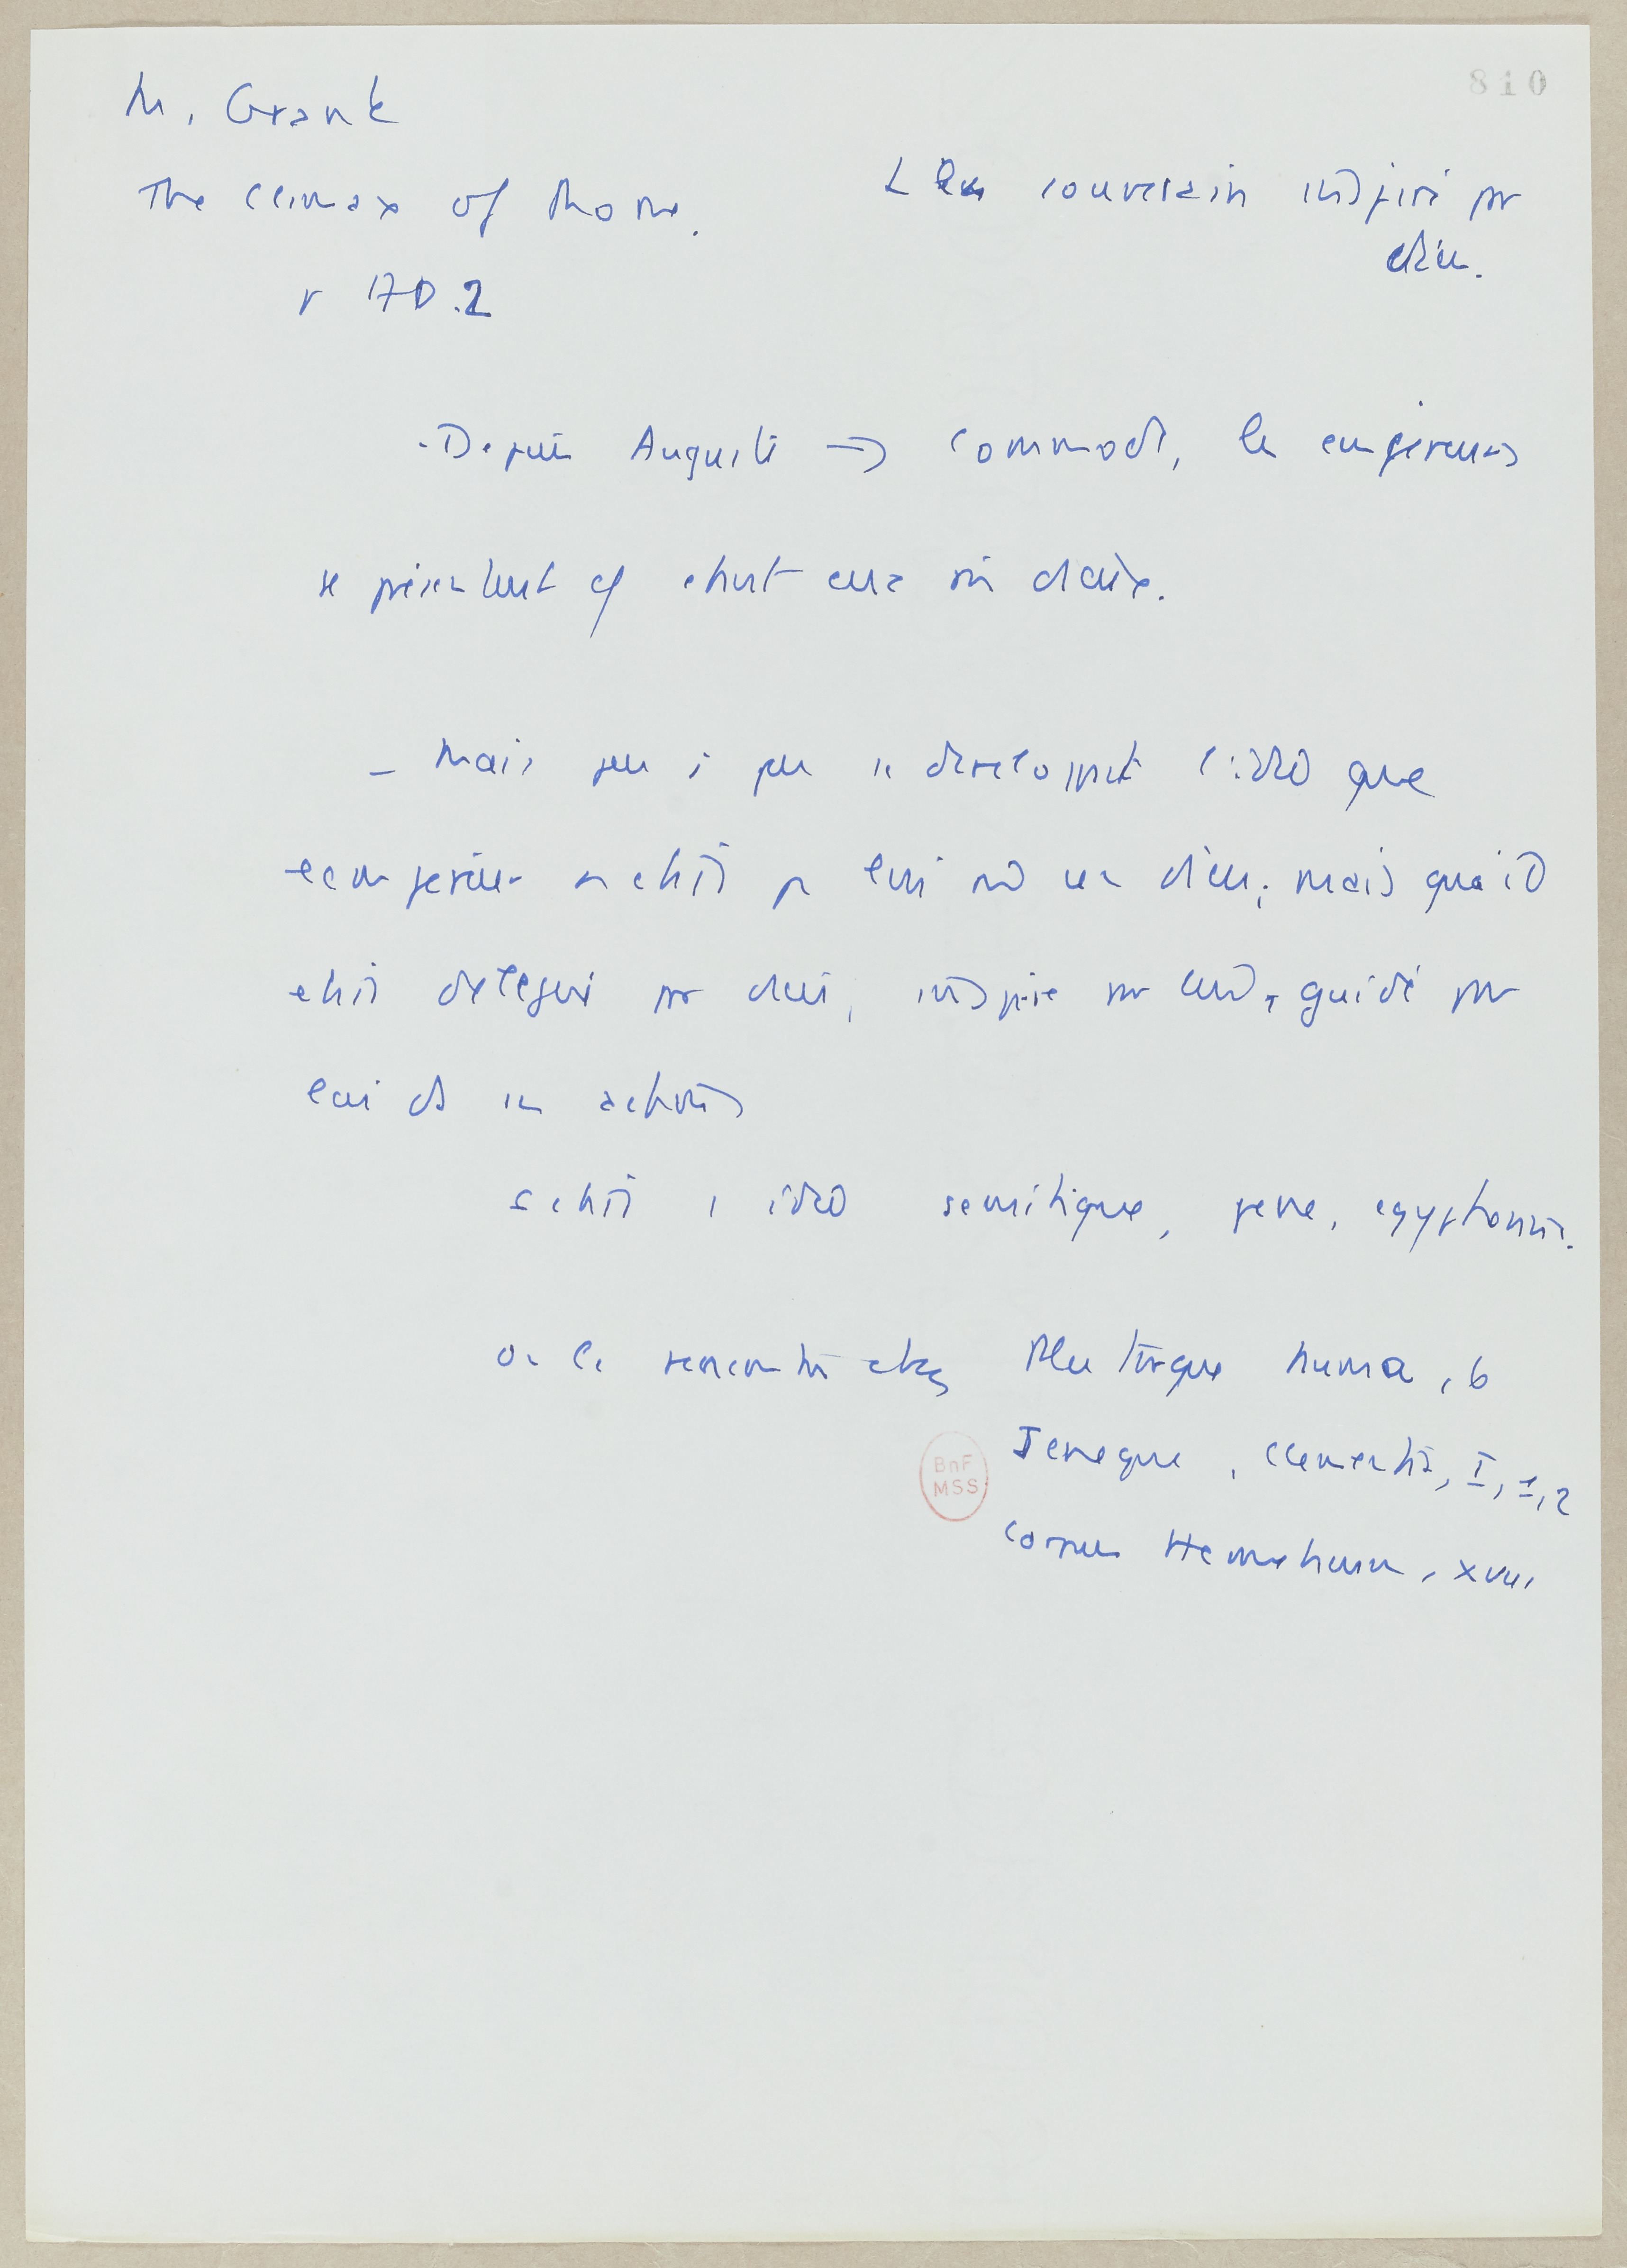 810
M. Grant
The Climax of Rome.
p 170.2
Le souverain inspiré par
dieu.
- Depuis Auguste → Commode, les empereurs
se présentent c/ étant eux mm dieux.
- Mais peu à peu se developpait l'idée que
l'empereur n'était pas lui mm un dieu; mais qu'il
était delegué par dieu, inspiré par lui, guidé par
lui ds ses actions
C'était 1 idée semitique, perse, egyptienne.
on la rencontre chez Plutarque Numa, 6
Seneque, Clementia, I, 1, 2
Corpus Hermeticum, XVIII
BnF
MSS